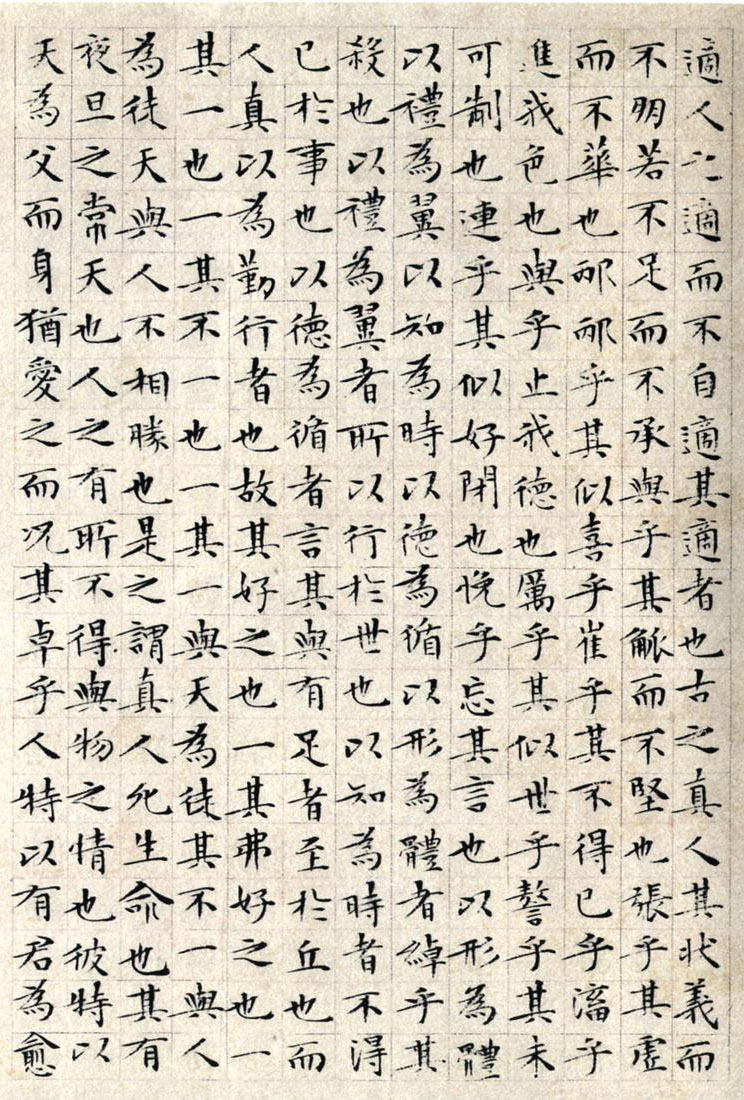 適人之適而不自適其適者也古之真人其状義而
不朋若不足而不承與乎其觚而不堅也張乎其虛
而不華也邴邴乎其似喜乎崔乎其不得已乎滀乎
進我色也與乎止我德也厲乎其似世乎謷乎其未
可制也連乎其似好閉也悗乎忘其言也以形為體
以禮為翼以知為時以德為循以形為體者綽乎其
殺也以禮為翼者所以行於世也以知為時者不得
已於事也以德為循者言其與有足者至於丘也而
人真以為勤行者也故其好之也一其弗好之也一
其一也一其不一也一其一與天為徒其不一與人
為徒天與人不相勝也是之謂真人死生命也其有
夜旦之常天也人之有所不得與物之情也彼特以
天為父而身猶愛之而况其卓乎人特以有君為愈